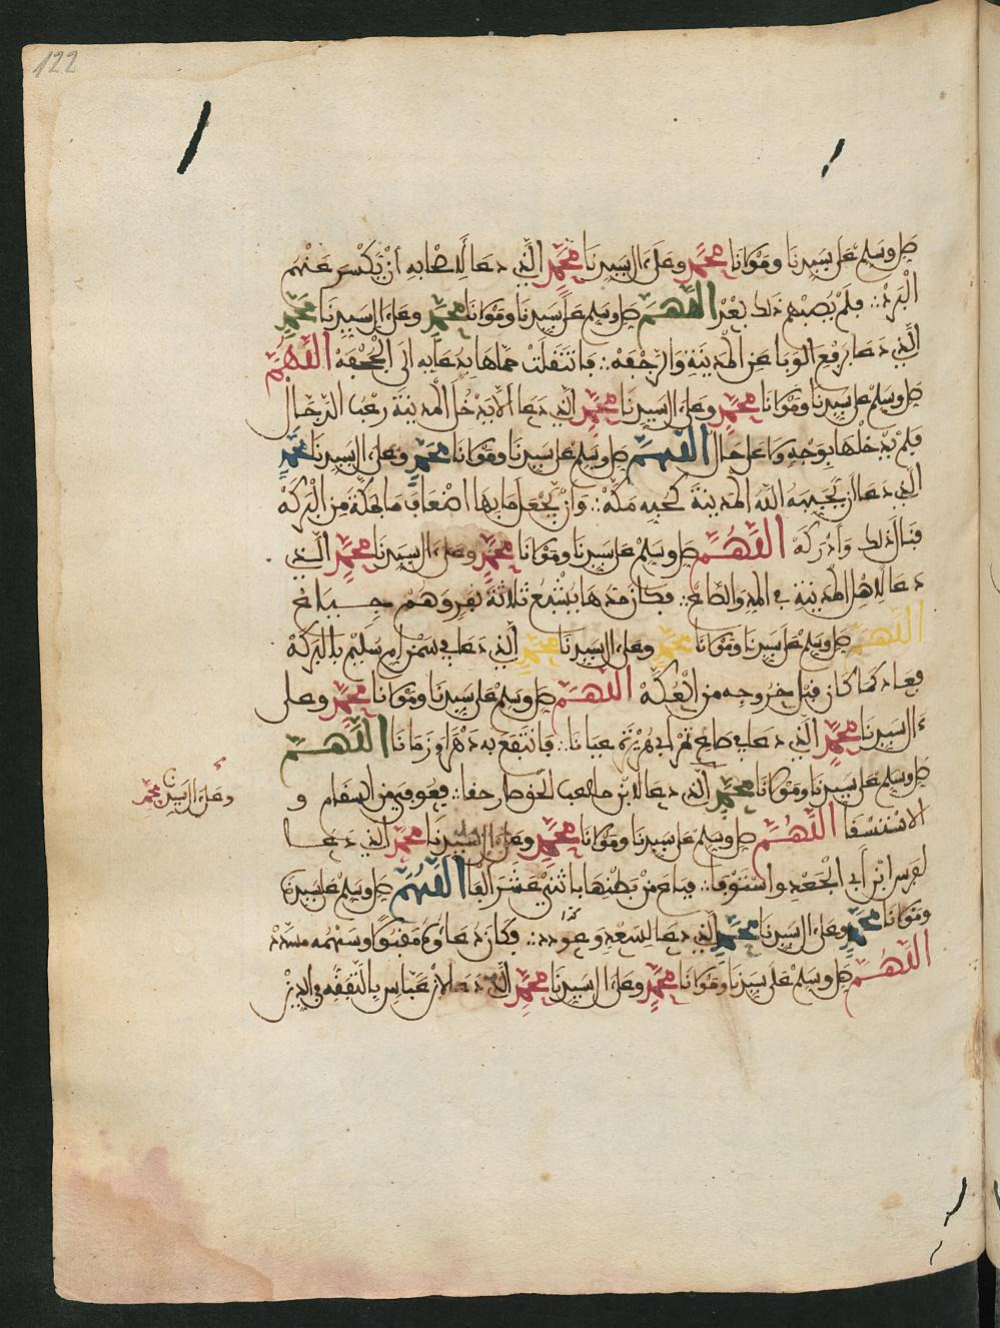 122
صل وسلم على سيدنا ومولانا محمد وعلى ءال سيدنا محمد الذي دعا لأصحابه أن يكسر عنهم
البرد فلم يصبهم ذلك بعد اللهم صل وسلم على سيدنا ومولانا محمد وعلى ءال سيدنا محمد
الذي دعا برفع الوبا عن المدينة والرجفة فانتفلت حماها بدعايه الى الجحفة اللهم
صل وسلم على سيدنا ومولانا محمد وعلى ءال سيدنا محمد الذي دعا ألا يدخل المدينة رعب الدجال
فلم يدخلها بوجه ولا على حال اللهم صل وسلم على سيدنا ومولانا محمد وعلى ءال سيدنا محمد
الذي دعا أن يحببه الله المدينة كحبه مكة وأن يجعل ما بها أضعاف ما بمكة من البركة
فنال ذلك وأدركه اللهم صل وسلم على سيدنا ومولانا محمد وعلى ءال سيدنا محمد الذي
دعا لأهل المدينة في المد والصاع فكان مدها يشبع ثلاثة نفر وهم جياع
اللهم صل وسلم على سيدنا ومولانا محمد وعلى ءال سيدنا محمد الذي دعا في سمن ام سليم بالبركة
فعاد كما كان قبل خروجه من العكة اللهم صل وسلم على سيدنا ومولانا محمد وعلى
ءال سيدنا محمد الذي دعا في صاع تمر ابي هريرة عيانا فانتفع به دهرا وزمانا اللهم
صل وسلم على سيدنا ومولانا محمد الذي دعا لابن حفا فعوفي من السقام و
وعلى ءال سيدنا محمد
الاستسقا اللهم صل وسلم على سيدنا ومولانا محمد وعلى ءال سيدنا محمد الذي دعا
لفرس ابن أبي الجعد فباع من بطنها باثني عشر ألفا اللهم صل وسلم على سيدنا
ومولانا محمد وعلى ءال سيدنا محمد الذي دعا لسعد فكان دعاؤه مقبولا وسهمه مسدد
اللهم صل وسلم على سيدنا ومولانا محمد وعلى ءال سيدنا محمد الذي دعا لابن عباس بالتفقه في الدين